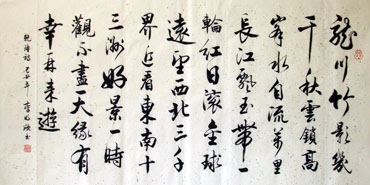 龍川竹影幾
千秋雲鎖高
峯水自流萬里
長江飄玉帶一
輪紅日滾金球
遠望西北三千
界近看東南十
三洲好景一時
觀不盡天緣有
幸再來遊
乾隆詩 己丑年 李